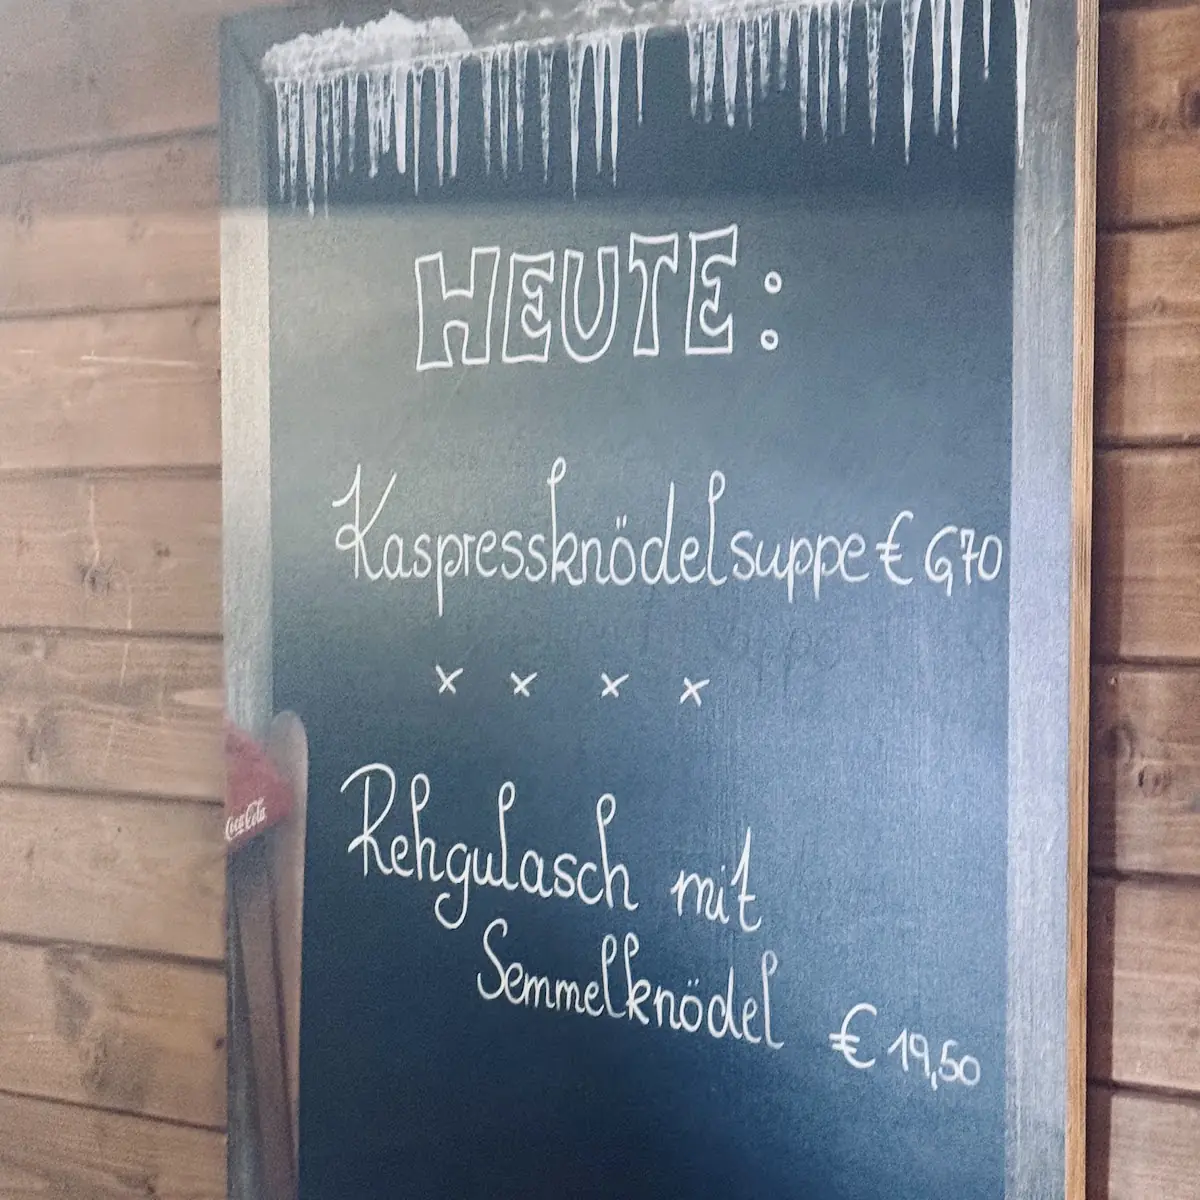 HEUTE:
Kaspressknödelsuppe € 6,70
x x x x
Rehgulasch mit
Semmelknödel
€ 19,50
Coca-Cola